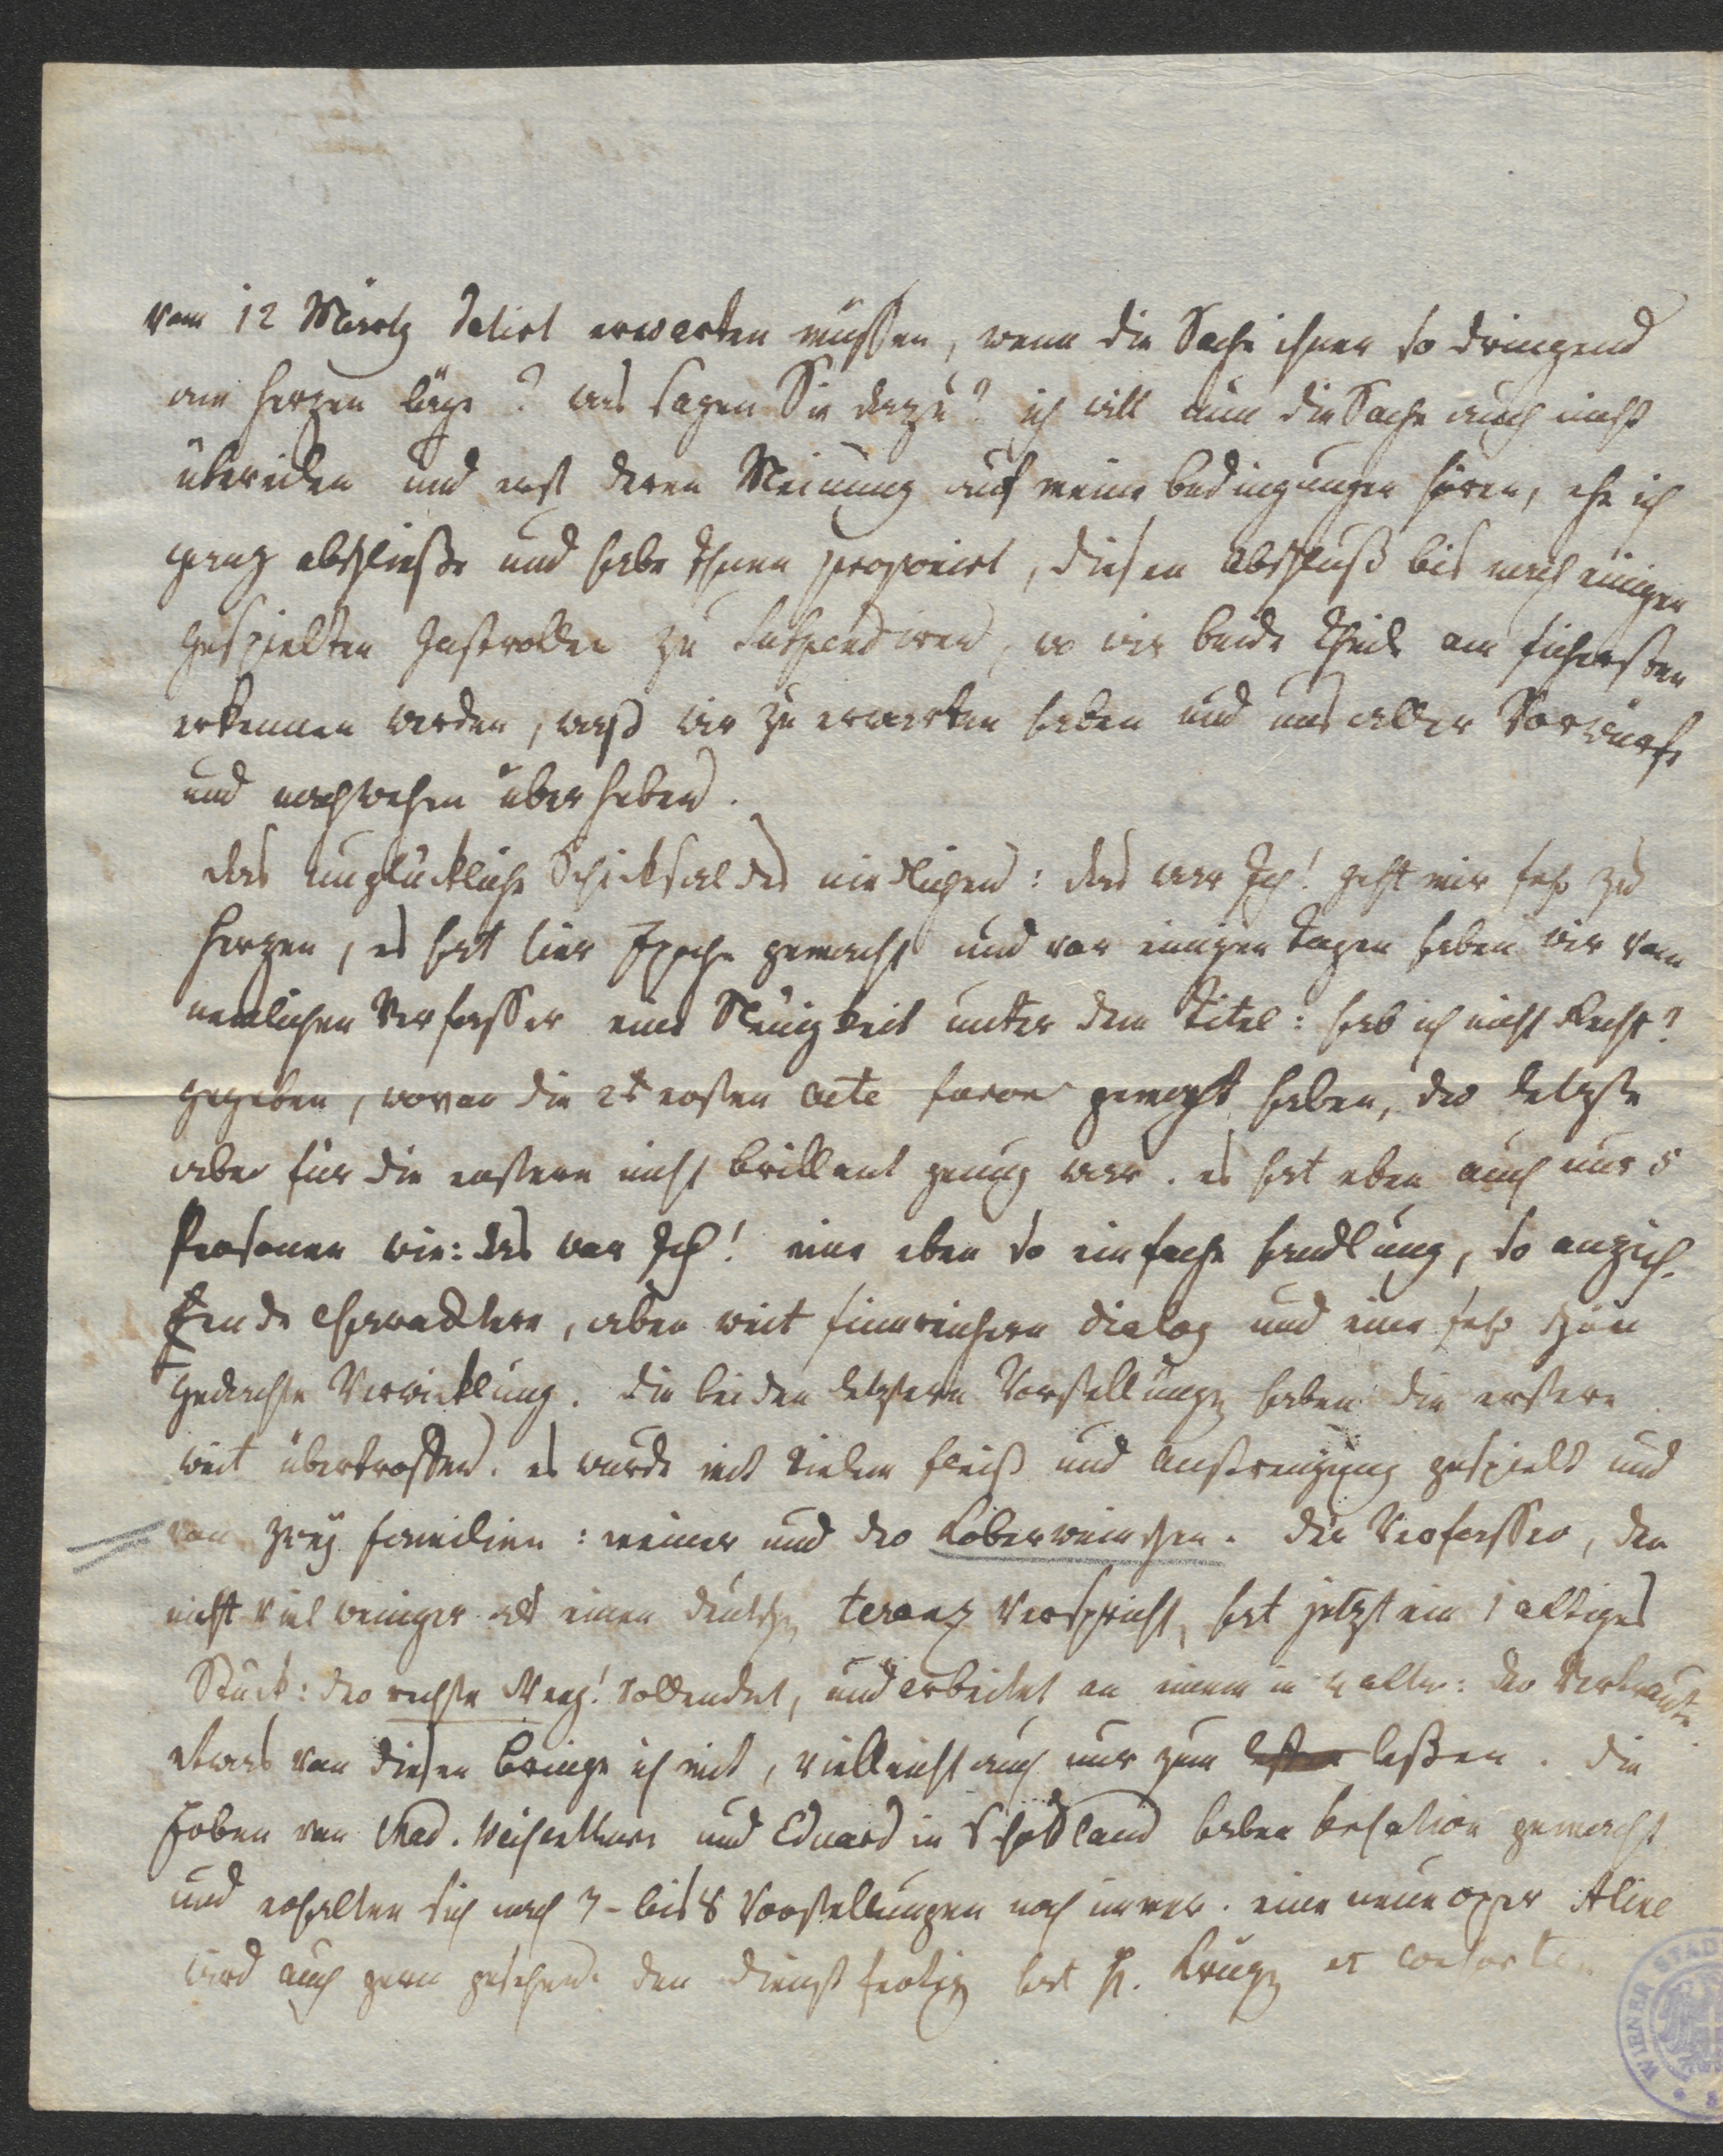 vom 12 Märtz datirt erwarten müssen, wenn die Sache ihnen so dringend
am Herzen läge? was sagen Sie dazu? ich will nun die Sache auch nicht
übereilen und erst deren Meinung auf meine bedingungen hören, ehe ich
ganz abschließe und habe Ihnen proponirt, diesen Abschluß bis nach einigen
gespielten Gastrollen zu suspendiren, wo wir beide Theile am sichersten
erkennen werden, waß wir zu erwarten haben und uns aller Vorwürfe
und nachwehen überheben.
das unglückliche Schicksal des niedlichen: das war Ich! geht mir sehr zu
Herzen, es hat hier Epoche gemacht und vor einigen Tagen haben wir vom
nemlichen Verfasser eine Neuigkeit unter dem Titel: hab ich nicht Recht?
gegeben, wovon die 2 ersten Acte furor gemacht haben, der letzte
aber für die erstern nicht brillant genug war. es hat eben auch nur 5
Personen wie: das war Ich! eine eben so einfache Handlung, so anzieh-
ende Charactere, aber weit sinnreichern Dialog und eine sehr schön
gedachte Verwicklung. die beiden letztern Vorstellungen haben die erstere
weit übertroffen. es wurde mit vielem Fleiß und Anstrengung gespielt und
von zwey Familien: meiner und der Koberweinschen. Der Verfasser, der
nicht viel weniger als einen deutschen Terenz verspricht, hat jetzt ein 1 aktiges
Stück: der rechte Weg! vollendet, und arbeitet an einem in 4 akten: der Vertraute
etwas von diesen bringe ich mit, vielleicht auch nur zum leßen. die
Proben von Mad. und Eduard in Schottland haben sensation gemacht
und erhalten sich nach 7- bis 8 Vorstellungen noch immer. eine neue Oper Aline
wird auch gern gesehen. den dienstfertigen hat H. Krüger et consorten
WIENER STAD